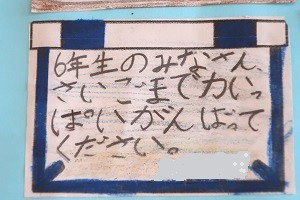 6年生のみなさん、
さいごまでカいっ
ぱいがんばって
ください。